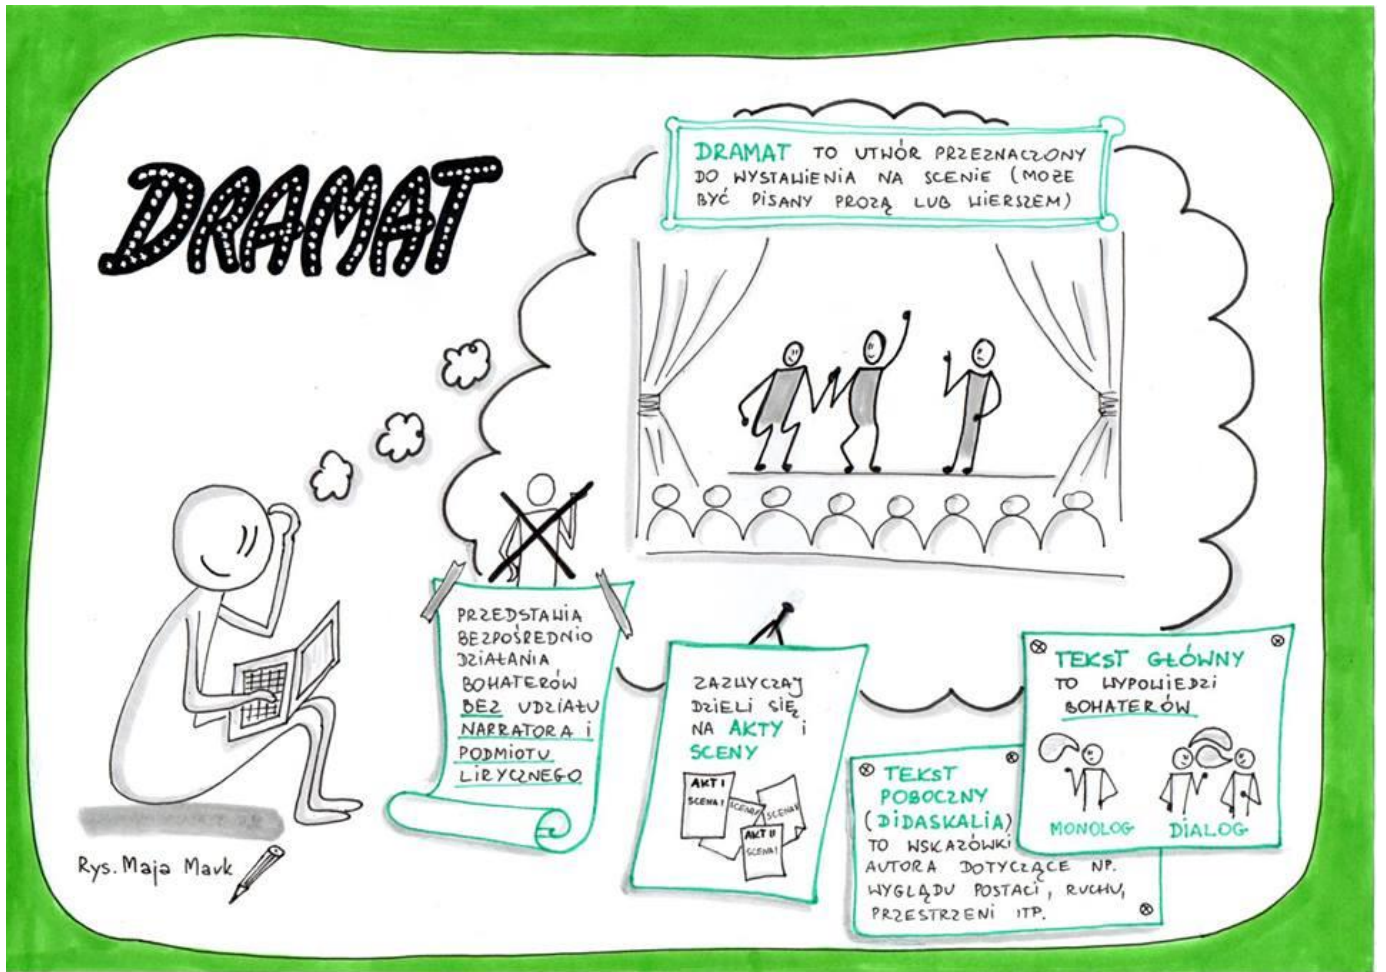 DRAMAT
DRAMAT TO UTWÓR PRZEZNACZONY
DO WYSTAWIENIA NA SCENIE (MOŻE
BYĆ PISANY PROZĄ LUB WIERSZEM)
PRZEDSTAWIA
BEZPOŚREDNIO
DZIAŁANIA
BOHATERÓW
BEZ UDZIAŁU
NARRATORA i
PODMIOTU
LIRYCZNEGO
ZAZWYCZAJ
DZIELI SIĘ
NA AKTY i
SCENY
AKT I
SCENA I
SCENA
SCENA
AKT II
SCENA I
TEKST
POBOCZNY
(DIDASKALIA)
TO WSKAZÓWKI
AUTORA DOTYCZĄCE NP.
WYGLĄDU POSTACI, RUCHU,
PRZESTRZENI ITP.
TEKST GŁÓWNY
TO WYPOWIEDZI
BOHATERÓW
MONOLOG DIALOG
Rys. Maja Mavk